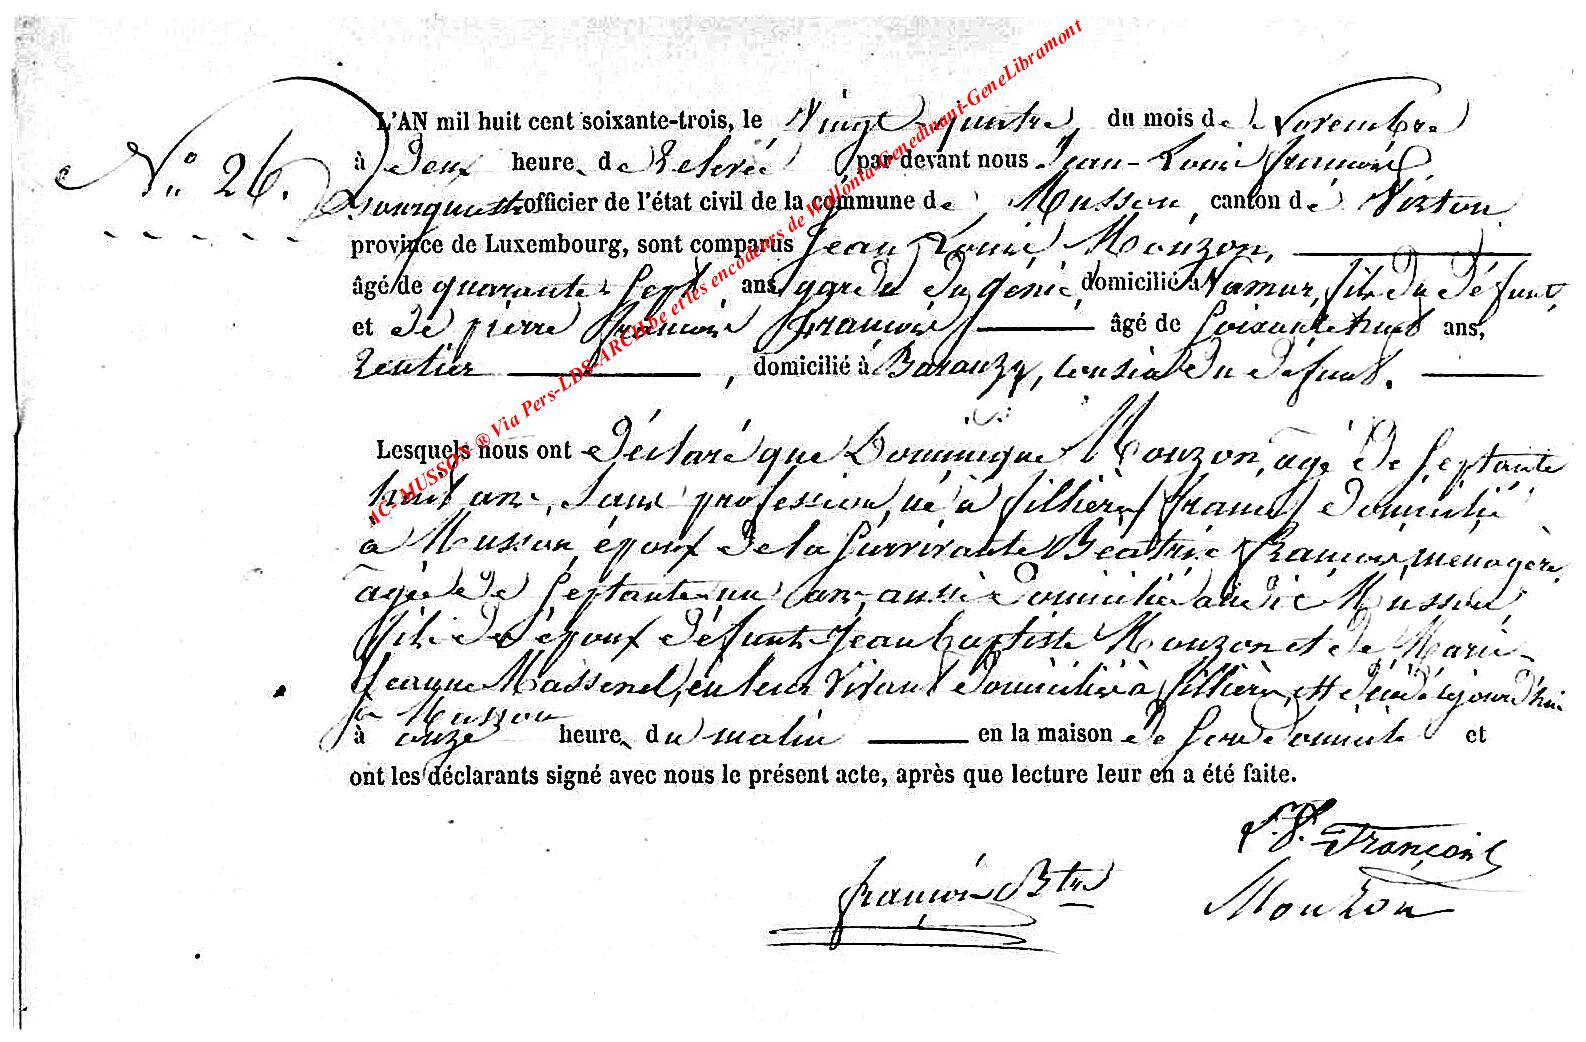 N.° 26.
L'AN mil huit cent soixante-trois, le Vingt-quatre du mois de Novembre
à Deux heure, de Relevée par devant nous Jean-Louis françois
Bourgmestre officier de l'état civil de la commune de Musson, canton de Virton
province de Luxembourg, sont comparus Jean Louis Mouzon,
âgé de quarante-sept ans, garde du génie, domicilié à Namur, fils du défunt,
et de pierre françois françois âgé de soixante huit ans,
Rentier, domicilié à Baranzy, cousin du défunt.
Lesquels nous ont déclaré que Dominique Mouzon, âgé de septante
huit ans, sans profession, né à fillières (france) domicilié
à Musson, époux de la survivante Béatrice françois, ménagère,
âgée de septante-un ans, aussi domiciliée audit Musson,
fils des époux défunts Jean Baptiste Mouzon et de Marie-
Jeanne Massenel, en leur vivant domiciliés à fillières, est décédé aujourd'hui
à Musson
à onze heure, du matin en la maison de son domicile et
ont les déclarants signé avec nous le présent acte, après que lecture leur en a été faite.
françois Btre
P. F. François
Mouzon
AC- MUSSON ® Via Pers-LDS-ARCH.be et les encodeurs de Wallonia-Genedinant-GeneLibramont